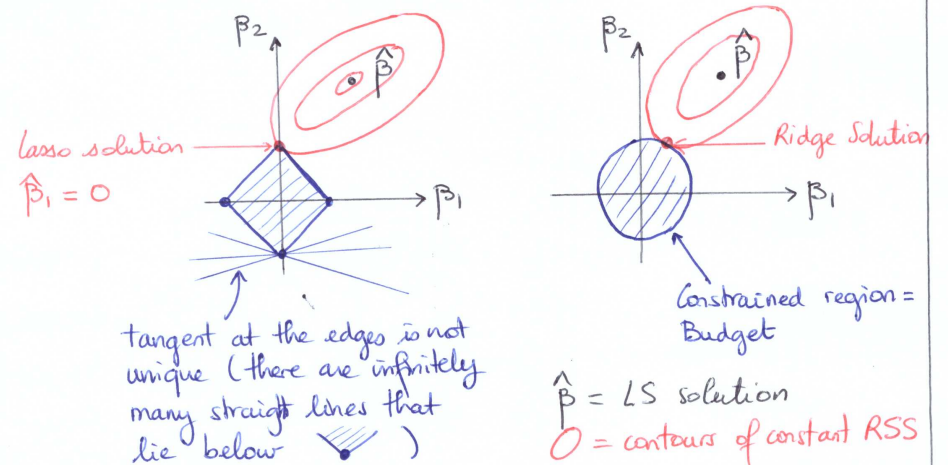 β2
β̂
Lasso solution
β̂1 = 0
β1
tangent at the edges is not
unique (there are infinitely
many straight lines that
lie below )
β2
β̂
Ridge Solution
β1
Constrained region =
Budget
β̂ = LS solution
O = contours of constant RSS